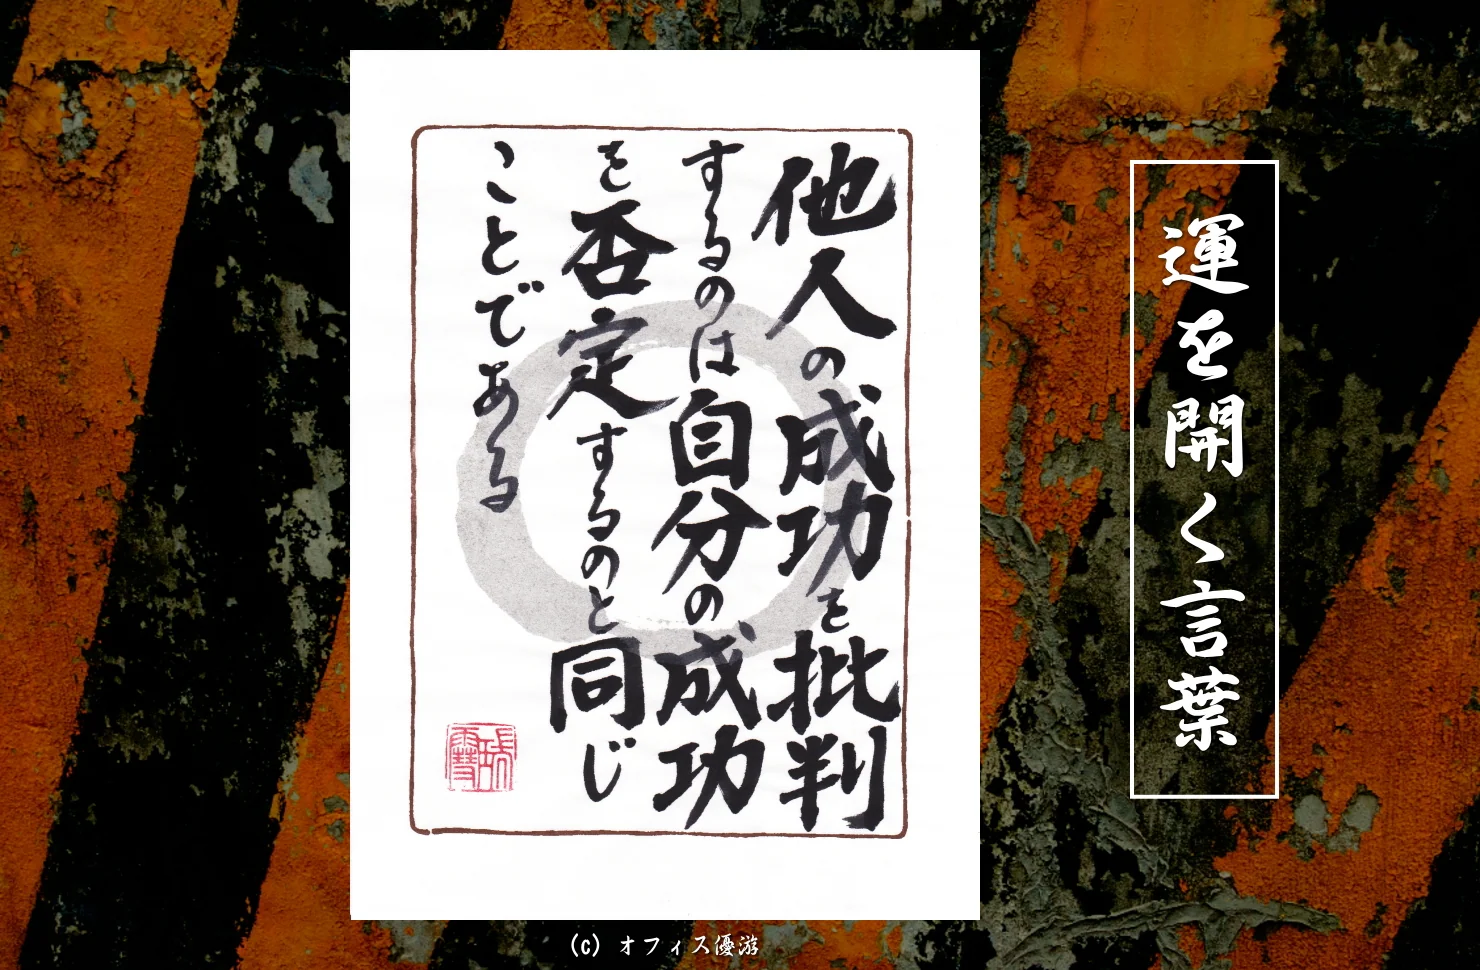 運を開く言葉
他人の成功を批判
するのは自分の成功
を否定するのと同じ
ことである
(c) オフィス優游